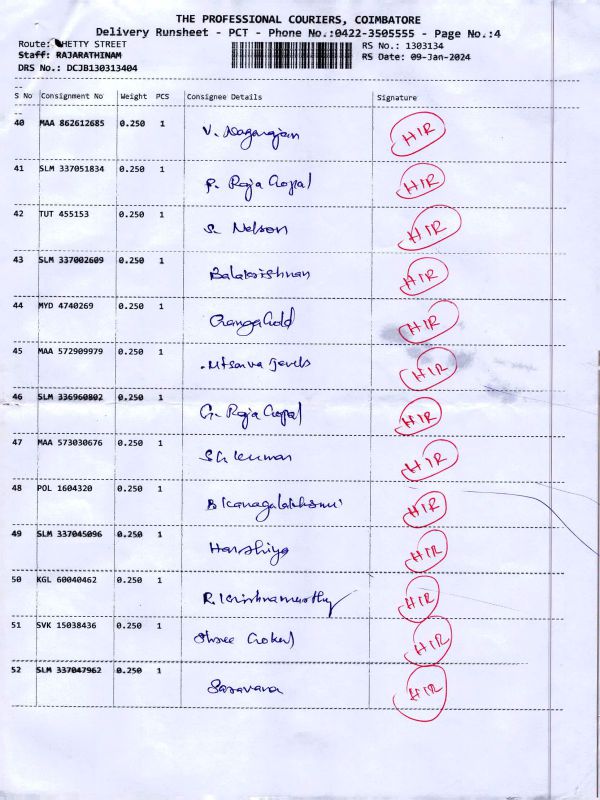 THE PROFESSIONAL COURIERS, COIMBATORE
Delivery Runsheet - PCT - Phone No.:0422-3505555 - Page No.:4
Route: HETTY STREET RS No.: 1303134
Staff: RAJARATHINAM RS Date: 09-Jan-2024
DRS No.: DCJB130313404
S No Consignment No Weight PCS Consignee Details Signature
40 MAA 862612685 0.250 1 V. Nagarajan HIR
41 SLM 337051834 0.250 1 P. Raja Gopal HIR
42 TUT 455153 0.250 1 S. Nelson HIR
43 SLM 337002609 0.250 1 Balakrishnan HIR
44 MYD 4740269 0.250 1 Ganga Gold HIR
45 MAA 572909979 0.250 1 Utsava Jewels HIR
46 SLM 336960802 0.250 1 G. Raja Gopal HIR
47 MAA 573030676 0.250 1 kumar HIR
48 POL 1604320 0.250 1 B Kanagalakshmi HIR
49 SLM 337045096 0.250 1 Harshiya HIR
50 KGL 60040462 0.250 1 R. Krishnamurthy HIR
51 SVK 15038436 0.250 1 Shree Gokul HIR
52 SLM 337047962 0.250 1 Saravana HIR